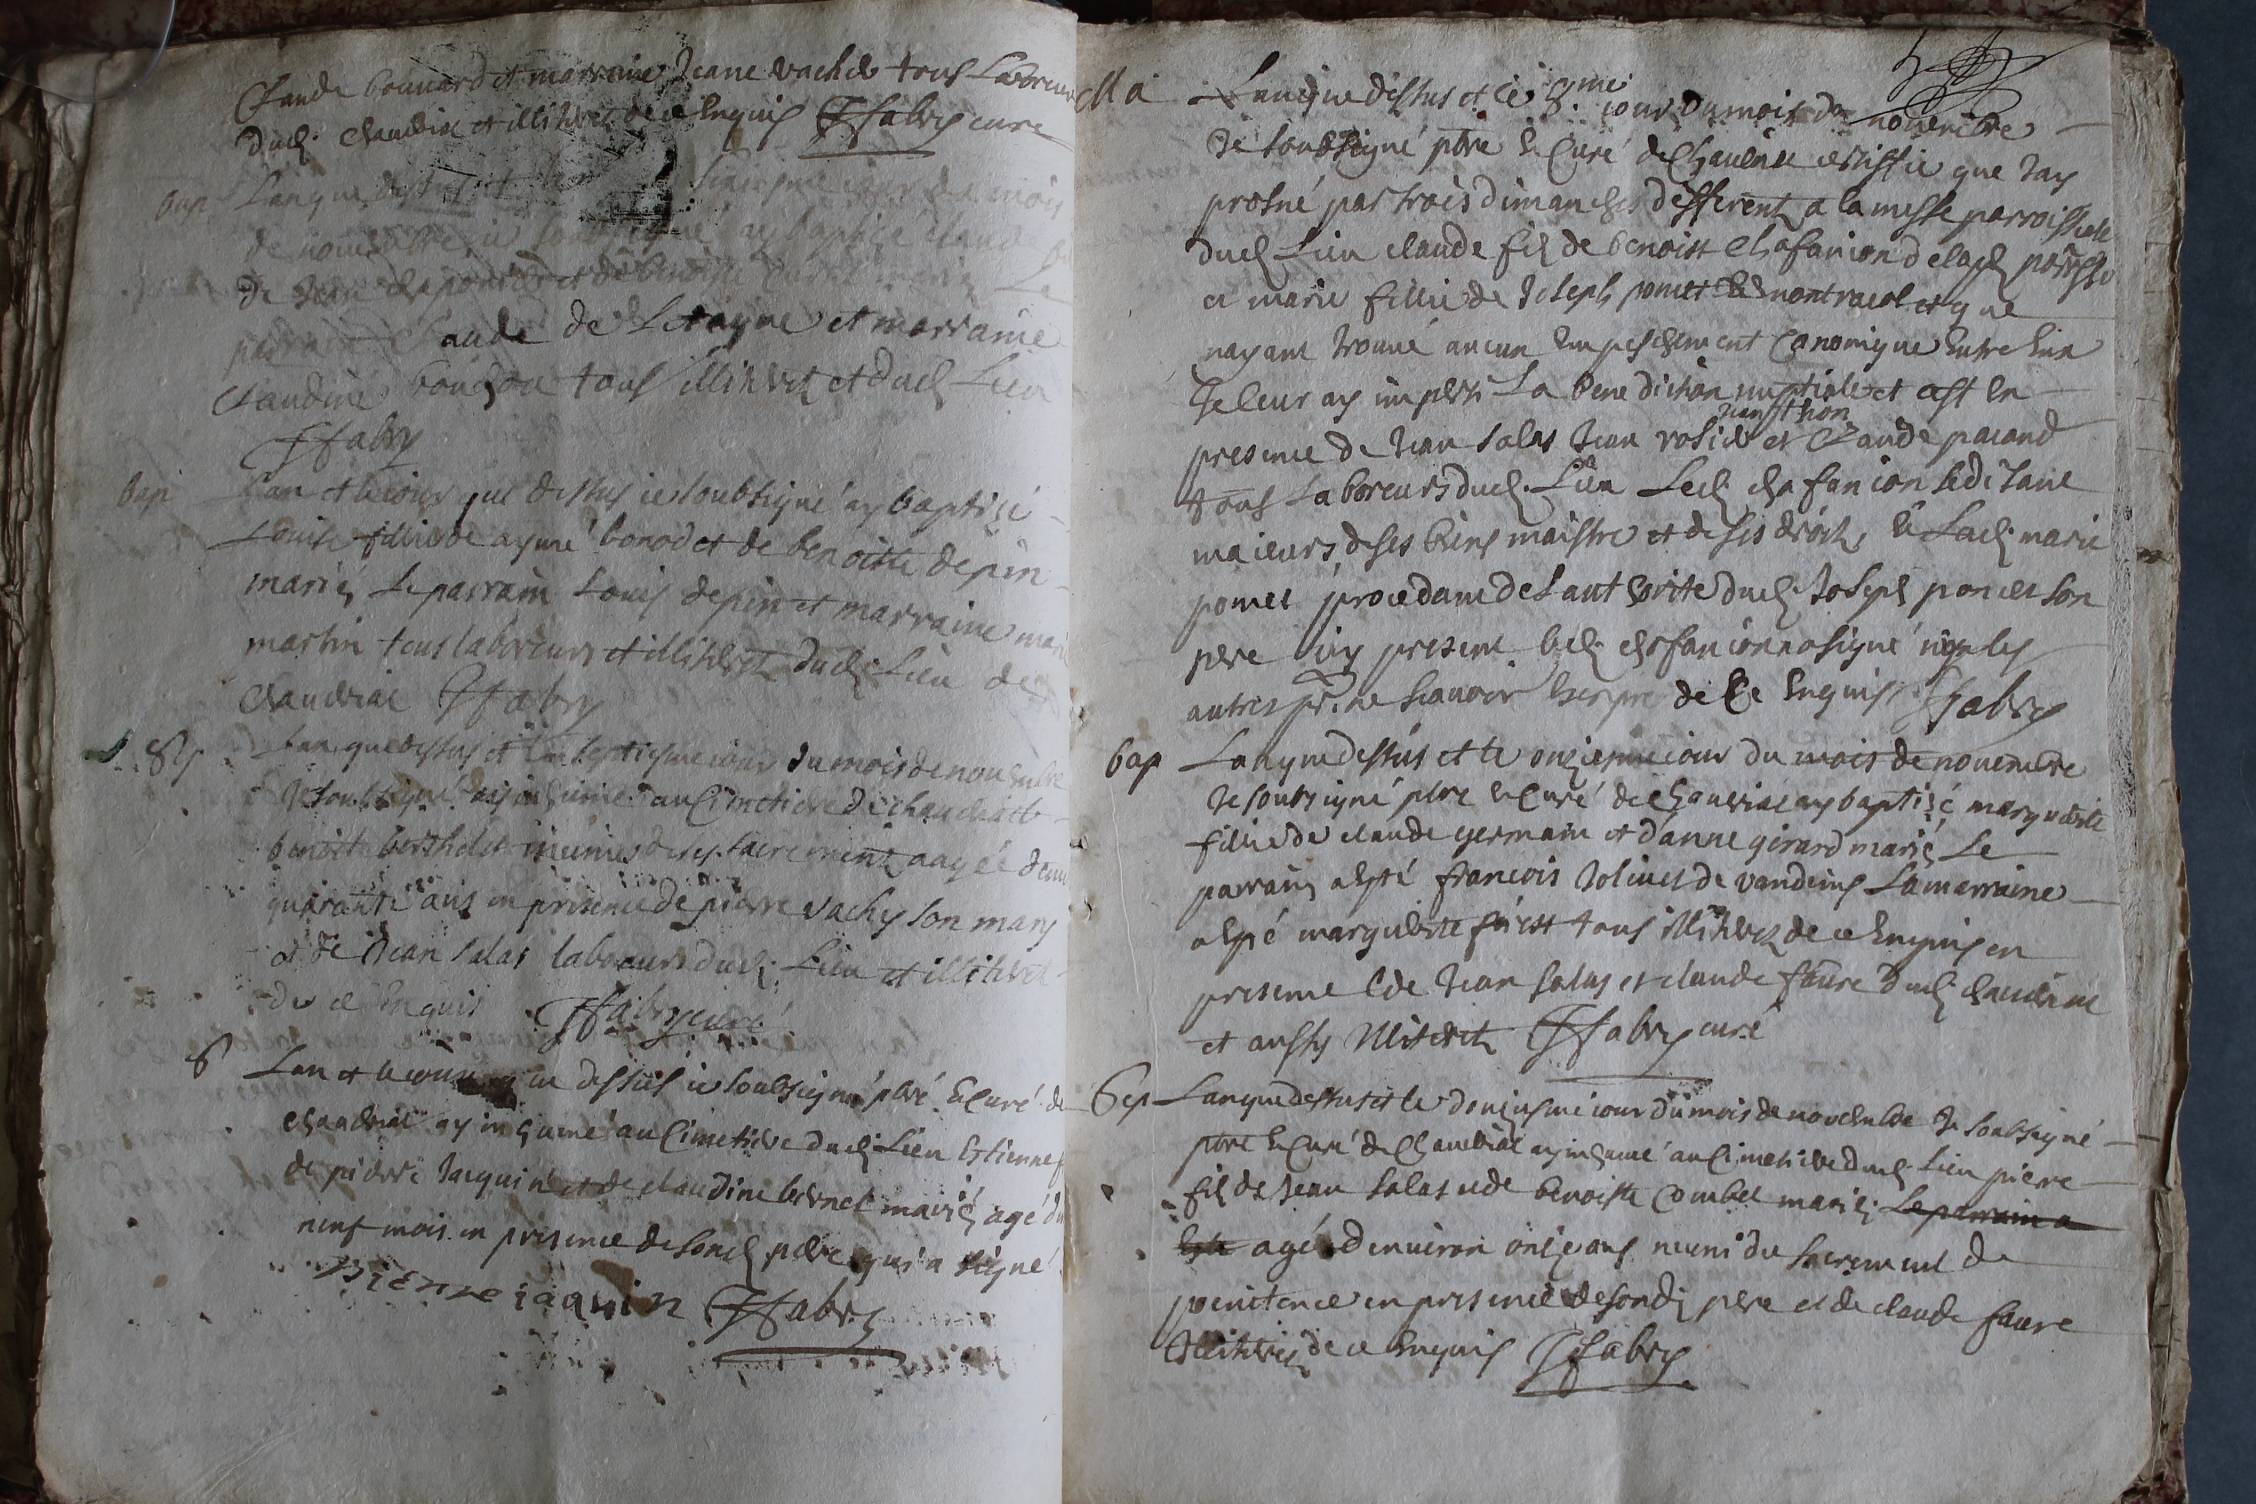 Claude bouuard et marraine Jeane vachds tous Laboreurs
dudi. chauuriat et illitterez de ce Enquis ffabry curé
bap Lan que dessus et le jour du mois
de nouembre ie soubsigné ay baptize claude
de Jean chaponier et de benoiste
parrain Claude de Letagne et marraine
Claudine tous illiterez et dudi. Lieu
ffabry
bap Lan et le iour que dessus ie soubsigné ay baptizé
Louise fillie de aymé bonod et de benoiste depin
mariés Le parrain Louis depin et marraine marie
martin tous laboreurs et illiterez dudi. Lieu de
Chauuriat ffabry
Lan que dessus et le septiesme iour du mois de nouembre
Je soubsigné ay inhumé au Cimetiere de chauuriat
benoite berthelet munie de ses sacrement aagéé denui
quarante ans en presence de pierre vachey son mary
et de Jean salas laboreurs dudi. Lieu et illiterez
de ce Enquis ffabry curé
S Lan et le iour que dessus ie soubsigné pbre & Curé de
chauuriat ay inhumé au Cimetiere dudi. Lieu Estienne f
de pierre Jacquin et de claudine bernet mariés agé du
neuf mois en presence de sondi. pere qui a signé
pierre iaquin ffabry
Ma Lan que dessus et le 8.me iour du mois de nouembre
Je soubsigné pbre & Curé de Chauuriat certiffie que Jay
prosné par trois dimanches different a la messe parroissiale
dudi. Lieu claude fils de benoist chafanion de ladi. paroisse
et marie fillie de Joseph pomet de montracol et que
nayant trouué aucun Empeschement Canonique Entre Eux
Je leur ay imparti La benediction nuptiale et cest En
Jean thon
presence de Jean salas Jean rosier et Claude pacand
tous Laboreurs dudi. Lieu Ledi. chafanion se disant
maieurs de ses biens maistre et de ses droits & Ladi. marie
pomet procedant de Lauthorite dudi. Joseph pomet son
pere icy present ledi. chafanion a signé non les
autres pr. ne scauoir Escrire de ce Enquis ffabry
bap Lan que dessus et le onziesme iour du mois de nouembre
Je soubsigné pbre & Curé de Chauuriat ay baptizé marguerite
fillie de claude germain et danne girard mariés Le
parrain a esté francois Joliuet de vandeins La marraine
a esté marguerite tous illiterez de ce Enquis en
presence de Jean salas et claude faure dudi. chauuriat
et aussy illiterez ffabry curé
Sep Lan que dessus et le douziesme iour du mois de nouembre Je soubsigné
pbre & Curé de Chauuriat ay inhumé au Cimetiere dudi. Lieu pierre
fils de Jean salas et de benoiste Combet mariés Le parrain a
Esté agé denuiron onze ans muni du sacrement de
penitence en presence de sondi. pere et de claude faure
illiterez de ce Enquis ffabry